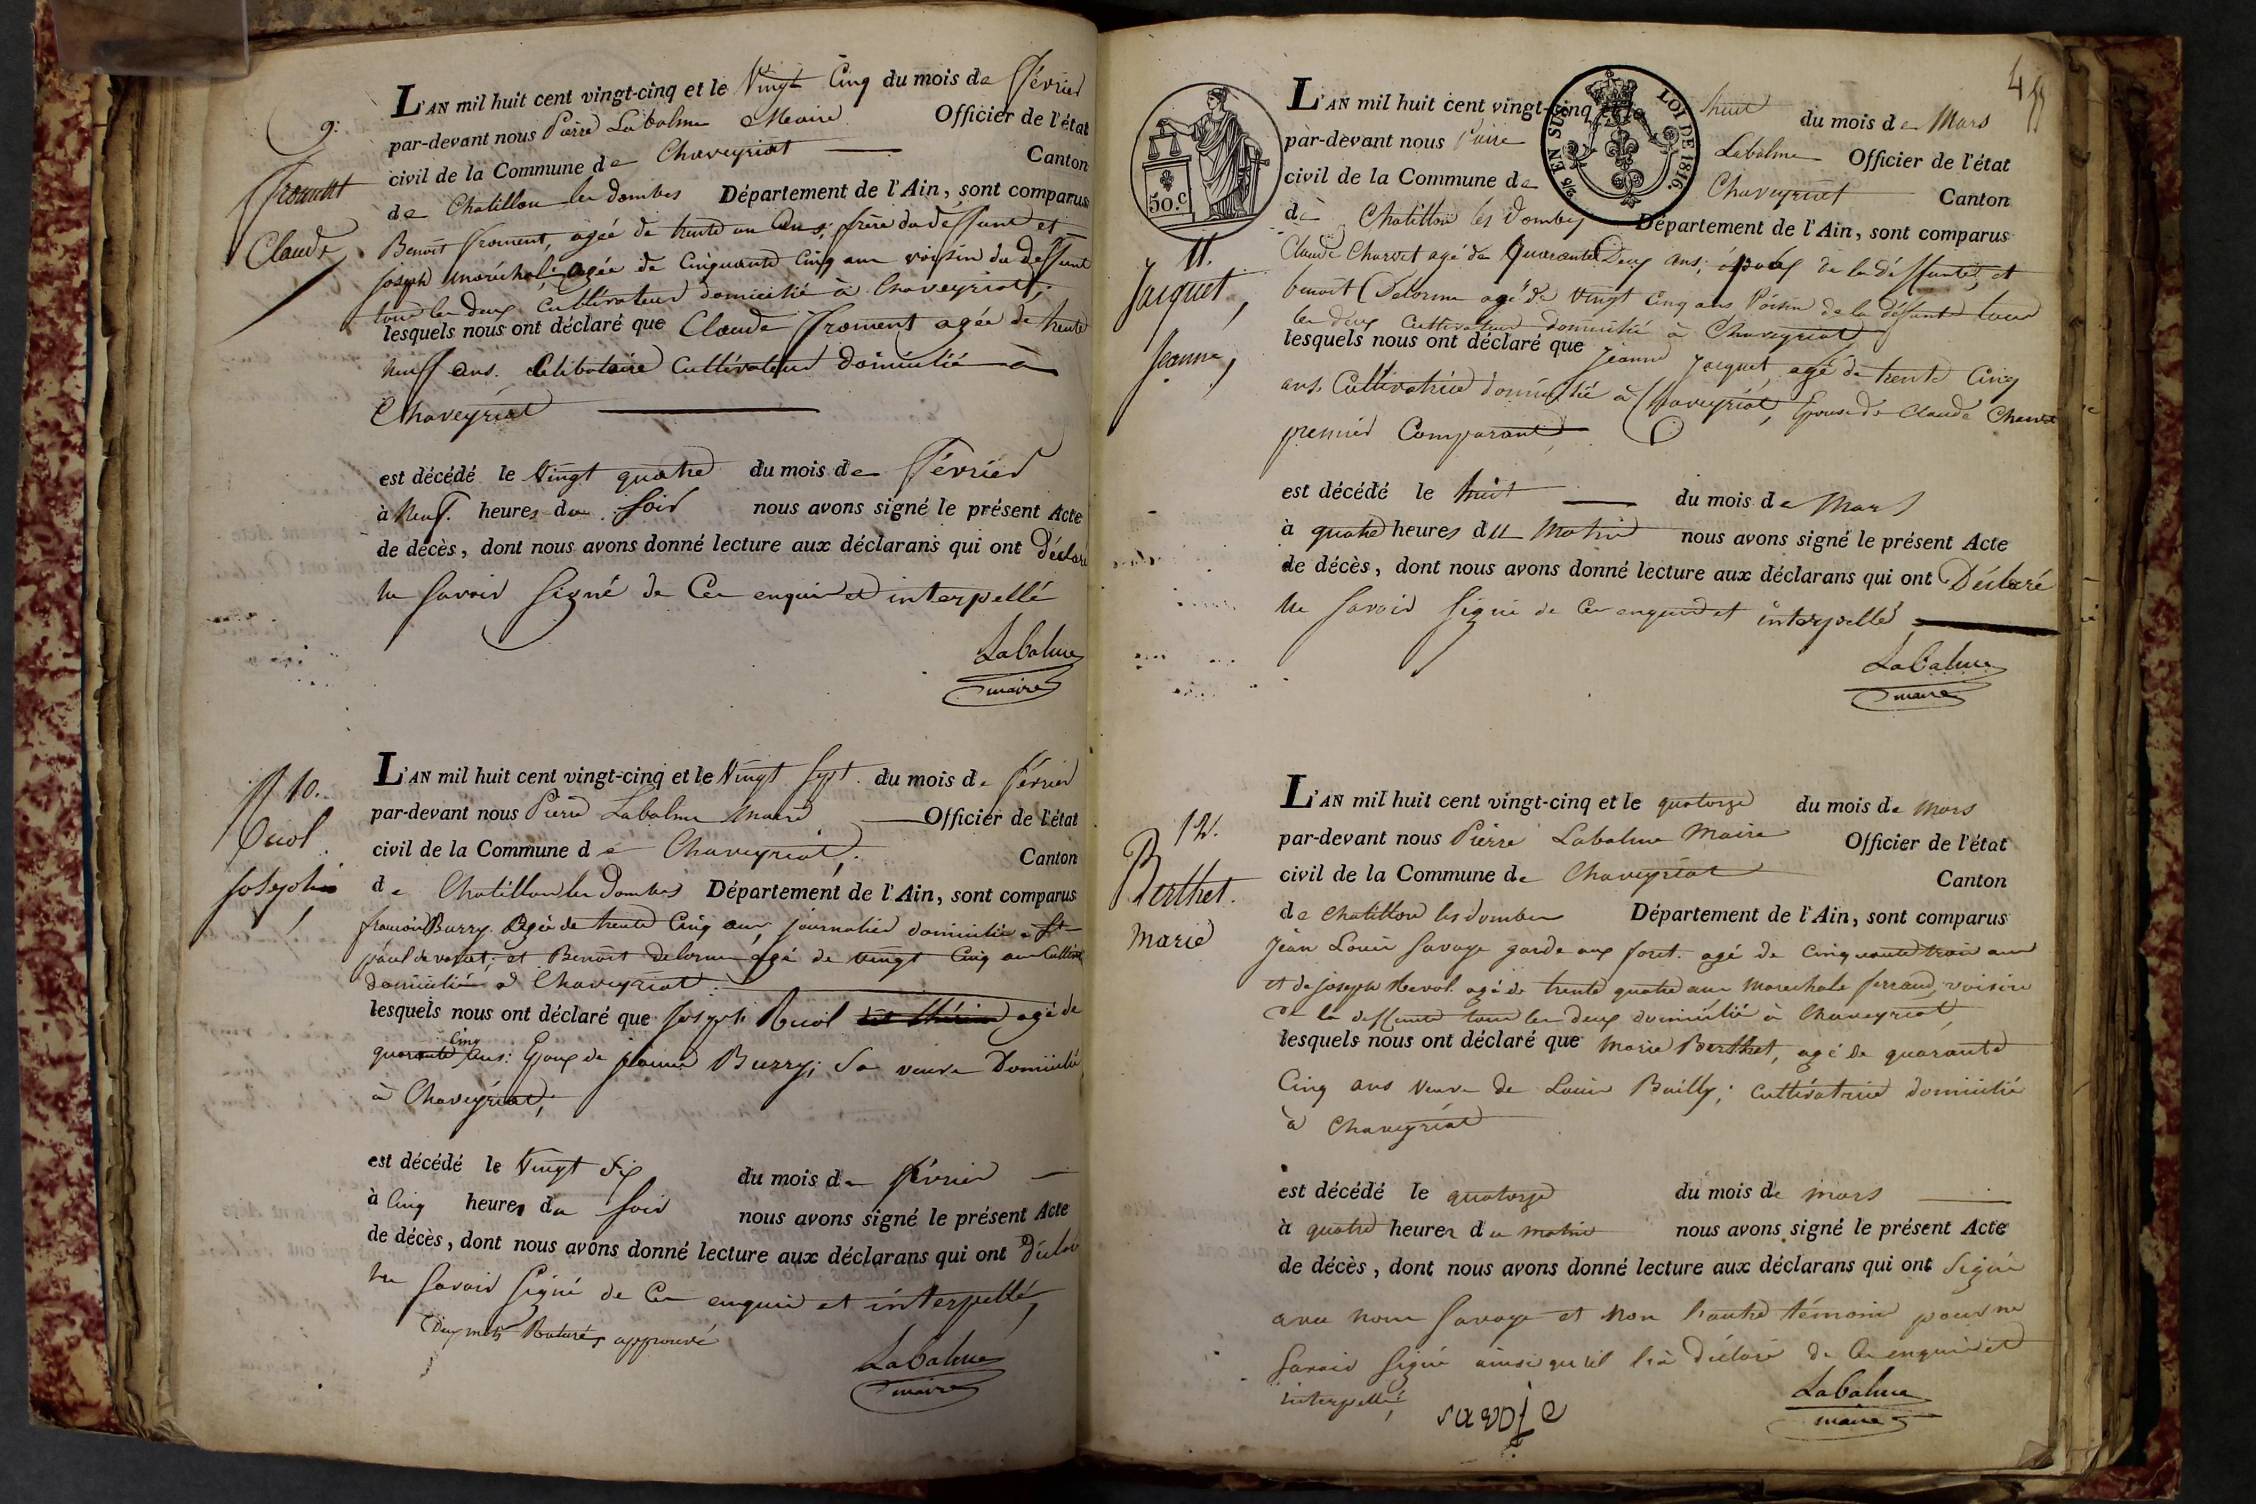 9.
Froment
Claude
L'AN mil huit cent vingt-cinq et le Vingt Cinq du mois de février
par-devant nous Pierre Labalme Maire Officier de l'état
civil de la Commune de Chaveyriat Canton
de Chatillon les dombes Département de l'Ain, sont comparus
Benoit froment, agée de trente un Ans; frère du deffunt et
joseph maréchal; agée de Cinquante Cinq ans voisin du deffunt
tous les deux Cultivateur domicilié à Chaveyriat;
lesquels nous ont déclaré que Claude froment agée de trente
neuf ans. Célibataire Cultivateur domicilié à
Chaveyriat
est décédé le Vingt quatre du mois de février
à Neuf heures du soir nous avons signé le présent Acte
de décès, dont nous avons donné lecture aux déclarans qui ont Déclaré
ne savoir signé de Ce enquis et interpellé
Labalme
maire
N 10.
joseph
L'AN mil huit cent vingt-cinq et le Vingt sept du mois de février
par-devant nous Pierre Labalme maire Officier de l'état
civil de la Commune de Chaveyriat; Canton
de Chatillon les Dombes Département de l'Ain, sont comparus
françois Burry Agée de trente Cinq ans, journalier domicilié a St
paul de varat; et Benoit delorme agé de vingt Cinq ans Cultiv
domicilié à Chaveyriat
lesquels nous ont déclaré que joseph agé de
quarante Cinq ans: Epoux de Burry; Sa veuve Domicilié
à Chaveyriat;
est décédé le Vingt six du mois de février
à Cinq heures du soir nous avons signé le présent Acte
de décès, dont nous avons donné lecture aux déclarans qui ont Déclaré
ne savoir signé de Ce enquis et interpellé,
Deux mots Raturés approuvé
Labalme
maire
50.C
EN SUS
LOI DE 1816.
11.
Jacquet,
Jeanne,
L'AN mil huit cent vingt-cinq et le huit du mois de Mars
par-devant nous Pierre Labalme Officier de l'état
civil de la Commune de Chaveyriat Canton
de Chatillon les Dombes Département de l'Ain, sont comparus
Claude Charvet agé de Quarante Deux ans; époux de la déffunte, et
benoit Delorme agé de Vingt Cinq ans Voisin de la déffunte tous
les deux Cultivateur domicilié à Chaveyriat,
lesquels nous ont déclaré que Jeanne Jacquet, agé de trente Cinq
ans. Cultivatrice domicilié à Chaveyriat, Epouse de Claude Charvet
premier Comparant,
est décédé le huit du mois de Mars
à quatre heures du Matin nous avons signé le présent Acte
de décès, dont nous avons donné lecture aux déclarans qui ont Déclaré
Ne savoir signé de Ce enquis et interpellé
Labalme
maire
12.
Berthet.
Marie
L'AN mil huit cent vingt-cinq et le quatorze du mois de Mars
par-devant nous Pierre Labalme Maire Officier de l'état
civil de la Commune de Chaveyriat Canton
de Chatillon les dombes Département de l'Ain, sont comparus
Jean Louis Savoye garde aux foret. agé de Cinquante trois ans
et de joseph Revol agé de trente quatre ans Marechale ferrand, voisin
de la deffunte tous les deux domicilié à Chaveyriat,
lesquels nous ont déclaré que Marie Berthet, agé de quarante
Cinq ans veuve de Louis Bailly; Cultivatrice domicilié
à Chaveyriat
est décédé le quatorze du mois de mars
à quatre heures du matin nous avons signé le présent Acte
de décès, dont nous avons donné lecture aux déclarans qui ont signé
avec nous Savoye et Non l'autre témoin pour ne
savoir signé ainsi qu'il l'a déclaré de Ce enquis et
interpellé,
savoie
Labalme
maire